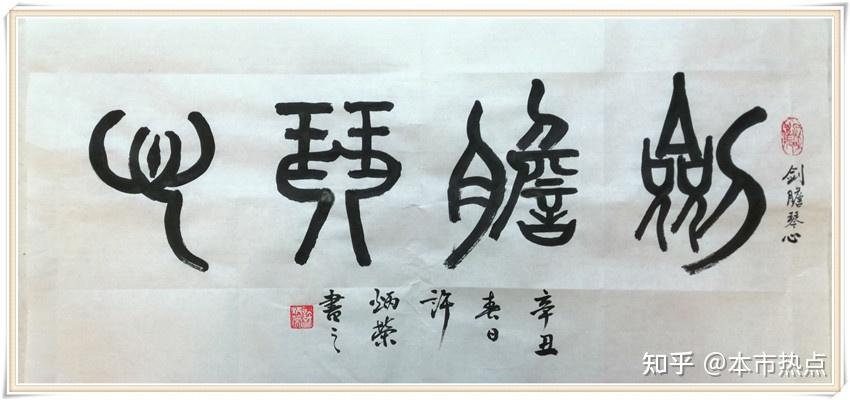 劍膽琴心
剑膽琴心
辛丑
春日
許
炳榮
書之
知乎 @本市热点